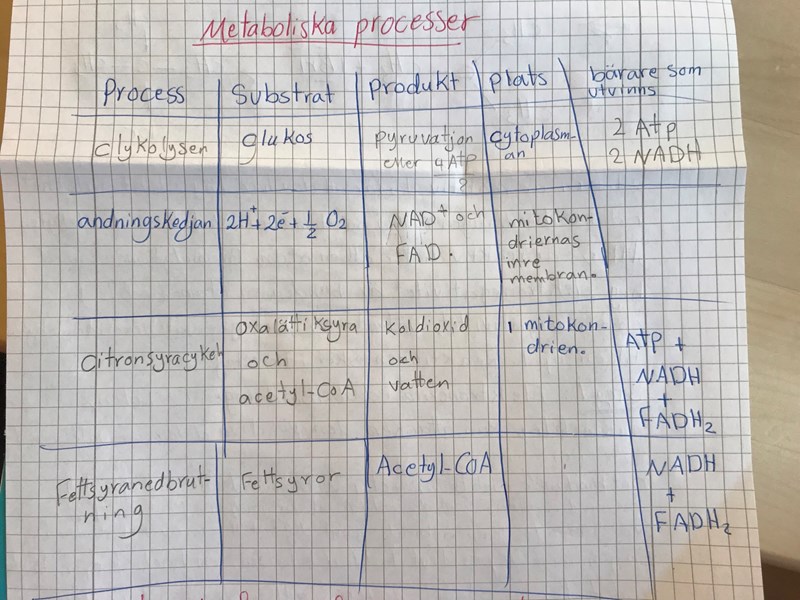 Metaboliska processer
Process
Substrat
Produkt
plats
bärare som
utvinns
Glykolysen
glukos
pyruvatjon
eller 4 Atp
?
cytoplasm-
an
2 Atp
2 NADH
andningskedjan
2H⁺+2e⁻+ 1/2 O₂
NAD⁺ och
FAD.
mitokon-
driernas
inre
membran.
Citronsyracykel
oxalättiksyra
och
acetyl-CoA
Koldioxid
och
vatten
i mitokon-
drien.
Atp +
NADH
+
FADH₂
Fettsyranedbrut-
ning
Fettsyror
Acetyl-CoA
NADH
+
FADH₂